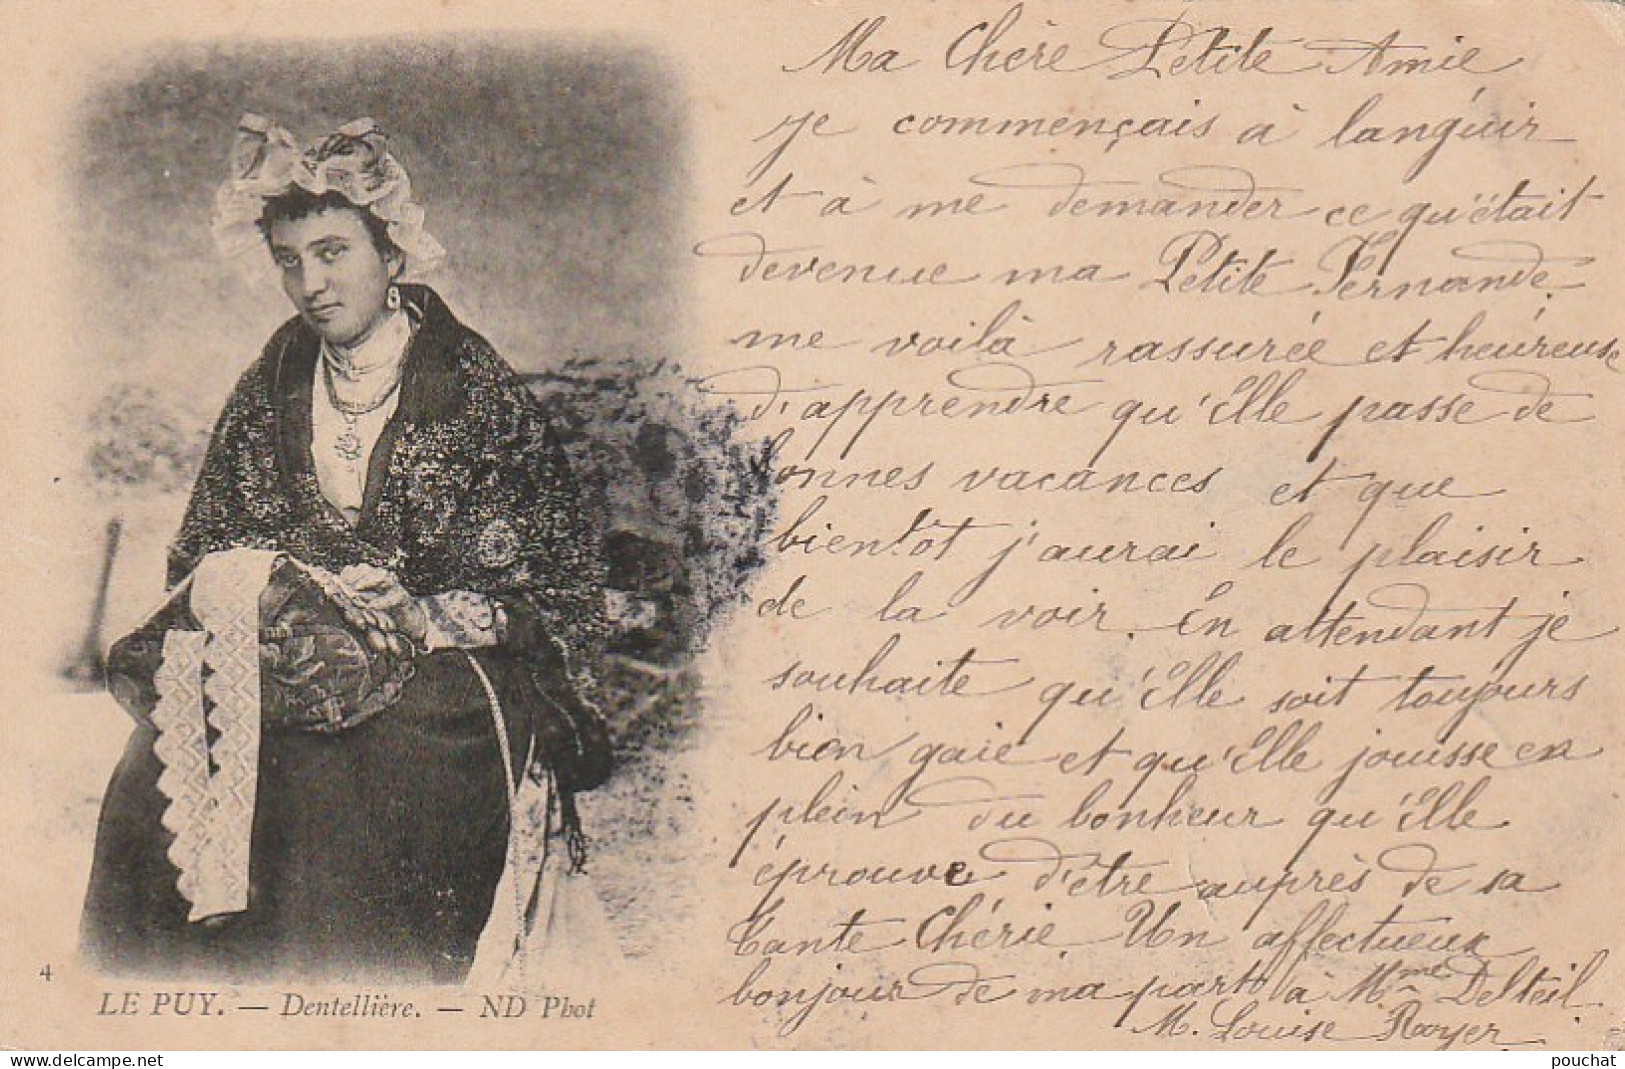 Ma Chère Petite Amie
je commençais à languir
et à me demander ce qu'était
devenue ma Petite Fernande.
me voilà rassurée et heureuse
d'apprendre qu'Elle passe de
bonnes vacances et que
bientôt j'aurai le plaisir
de la voir. En attendant je
souhaite qu'Elle soit toujours
bien gaie et qu'Elle jouisse en
plein du bonheur qu'Elle
éprouve d'être auprès de sa
Tante Chérie. Un affectueux
bonjour de ma part à Mme Delteil.
M. Louise Royer.
4
LE PUY. — Dentellière. — ND Phot
pouchat